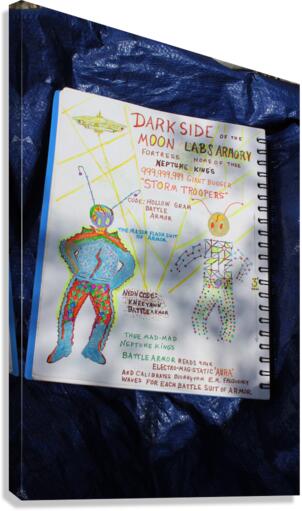 DARK SIDE OF THE
MOON LABS ARMORY
FORTRESS HOME OF THEE
NEPTUNE KINGS
999,999,999 GIANT BUGGER
"STORM TROOPERS"
CODE: HOLLOW GRAM
BATTLE
ARMOR
THE MAJOR FLASH SUIT
OF ARMOR
NEON CODE:
BATTLE ARMOR
THEE MAD-MAD
NEPTUNE KINGS
BATTLE ARMOR READS YOUR
ELECTRO-MAG-STATIC "AURA"
AND CALIBRATES YOUR E.M. FREQUENCY
WAVES FOR EACH BATTLE SUIT OF ARMOR